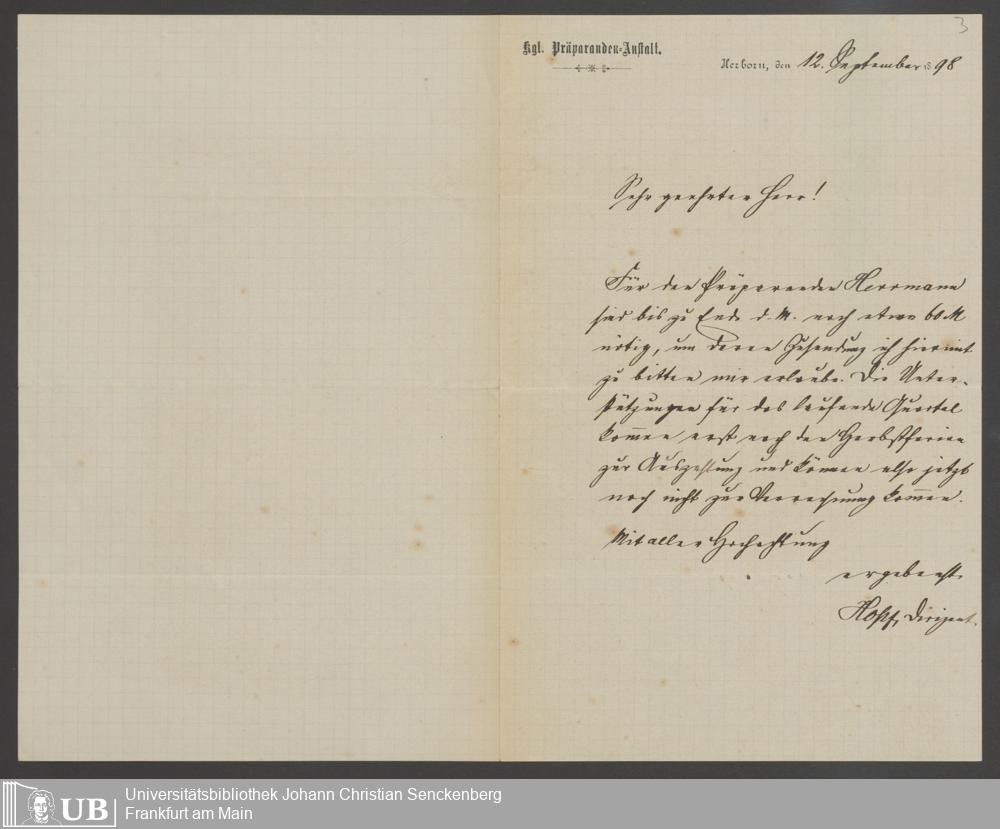 3
Kgl. Präparanden-Anstalt.
Herborn, den 12. September 1898
Sehr geehrter Herr!
Für den Präparanden Herrmann
sind bis zu Ende d. M. noch etwa 60 M
nötig, um deren Zusendung ich hiermit
zu bitten mir erlaube. Die Unter-
stützungen für das laufende Quartal
kommen erst nach den Herbstferien
zur Auszahlung und können also jetzt
noch nicht zur Verrechnung kommen.
Mit aller Hochachtung
ergebenst
Hopf, Dirigent.
UB
Universitätsbibliothek Johann Christian Senckenberg
Frankfurt am Main